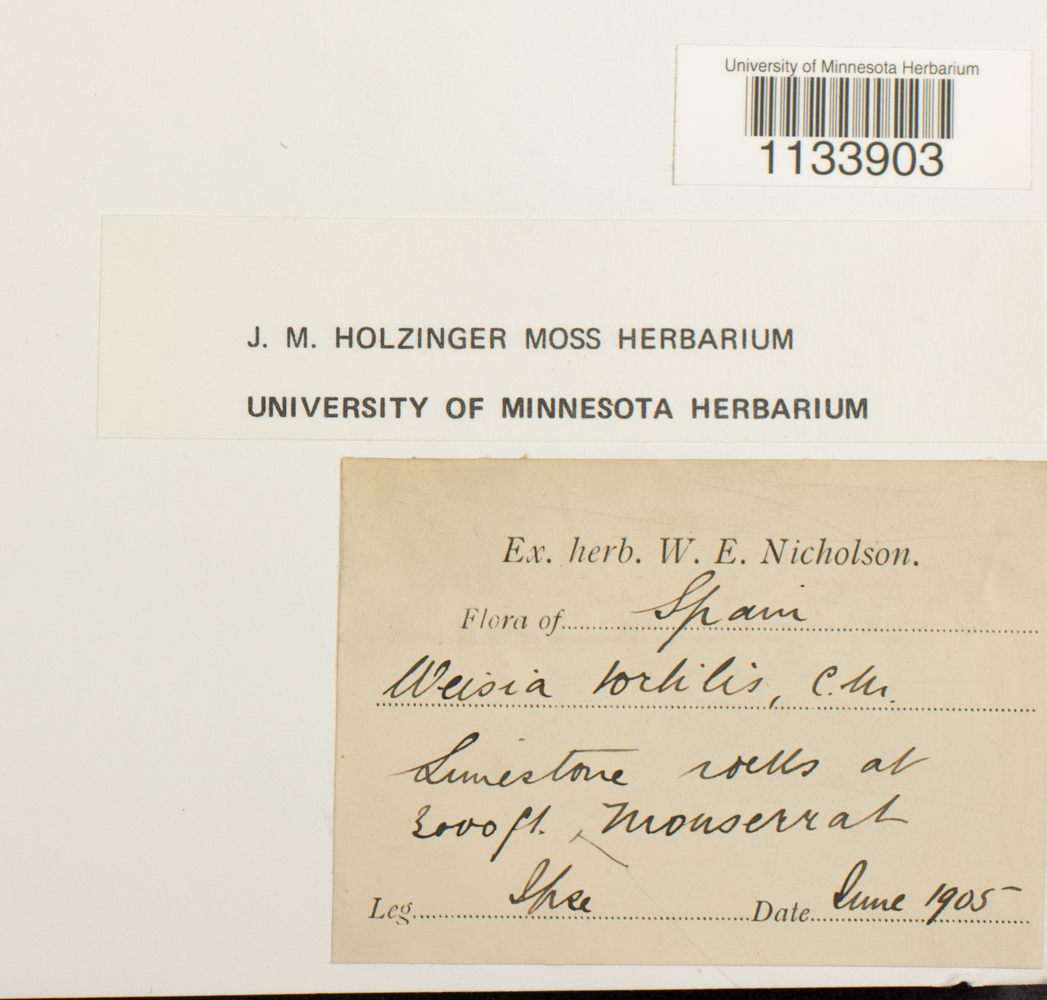 University of Minnesota Herbarium
1133903
J. M. HOLZINGER MOSS HERBARIUM
UNIVERSITY OF MINNESOTA HERBARIUM
Ex. herb. W. E. Nicholson.
Flora of Spain
Weisia tortilis, C.M.
Limestone rocks at
3000 ft., Monserrat
Leg. Ipse Date June 1905